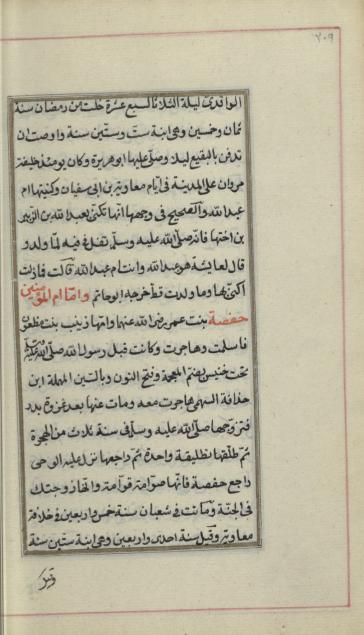 ٢٠٩
الواقدى ليلة الثلاثا لسبع عشرة خلت من رمضان سنة
ثمان وخمسين وهى ابنة ست وستين سنة واوصت ان
تدفن بالبقيع ليلا وصلى عليها ابو هريرة وكان يومئذ خليفة
مروان على المدينة فى ايام معاوية بن ابى سفيان وكنيتها ام
عبد الله والصحيح فى وجهها انها تكنى بعبد الله بن الزبير
بن اختها فانه صلى الله عليه وسلم تفل فى فيه لما ولد و
قال لعايشة هو عبد الله وانت ام عبد الله قالت فما زلت
اكنى بها وما ولدت قط خرجه ابو حاتم واما ام المؤمنين
حفصة بنت عمر رضى الله عنها وامها زينب بنت مظعون
فاسلمت وهاجرت وكانت قبل رسول الله صلى الله عليه وسلم
تحت خنيس بضم المعجمة وفتح النون وبالسين المهملة ابن
حذافة السهمى هاجرت معه ومات عنها بعد غزوة بدر
فتزوجها صلى الله عليه وسلم فى سنة ثلاث من الهجرة
ثم طلقها تطليقة واحدة ثم راجعها نزل عليه الوحى
راجع حفصة فانها صوامة قوامة وانها زوجتك
فى الجنة وماتت فى شعبان سنة خمس واربعين فى خلافة
معاوية وقيل سنة احدى واربعين وهى ابنة ستين سنة
وقيل